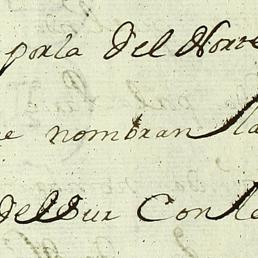 porla del Norte
e nombran la
del Sur Con la